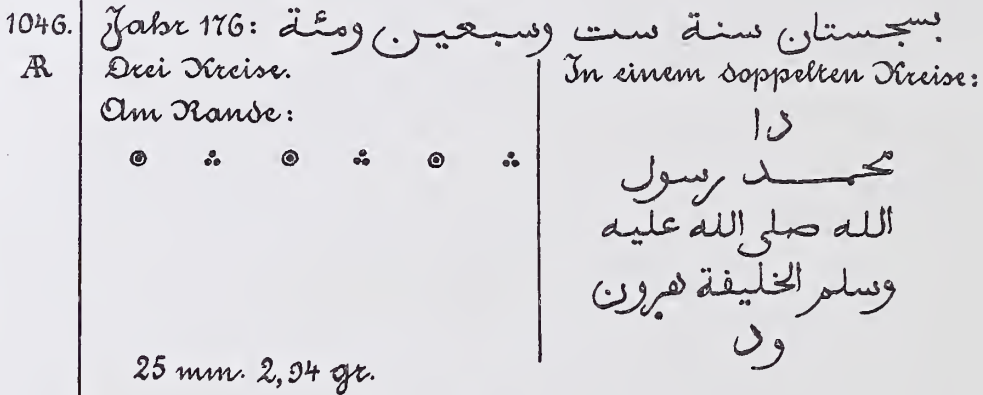 1046. Jahr 176: بسجستان سنة ست وسبعين ومئة
AR Drei Kreise.
Am Rande:
25 mm. 2,94 gr.
In einem doppelten Kreise:
دا
محمد رسول
الله صلى الله عليه
وسلم الخليفة هرون
ود